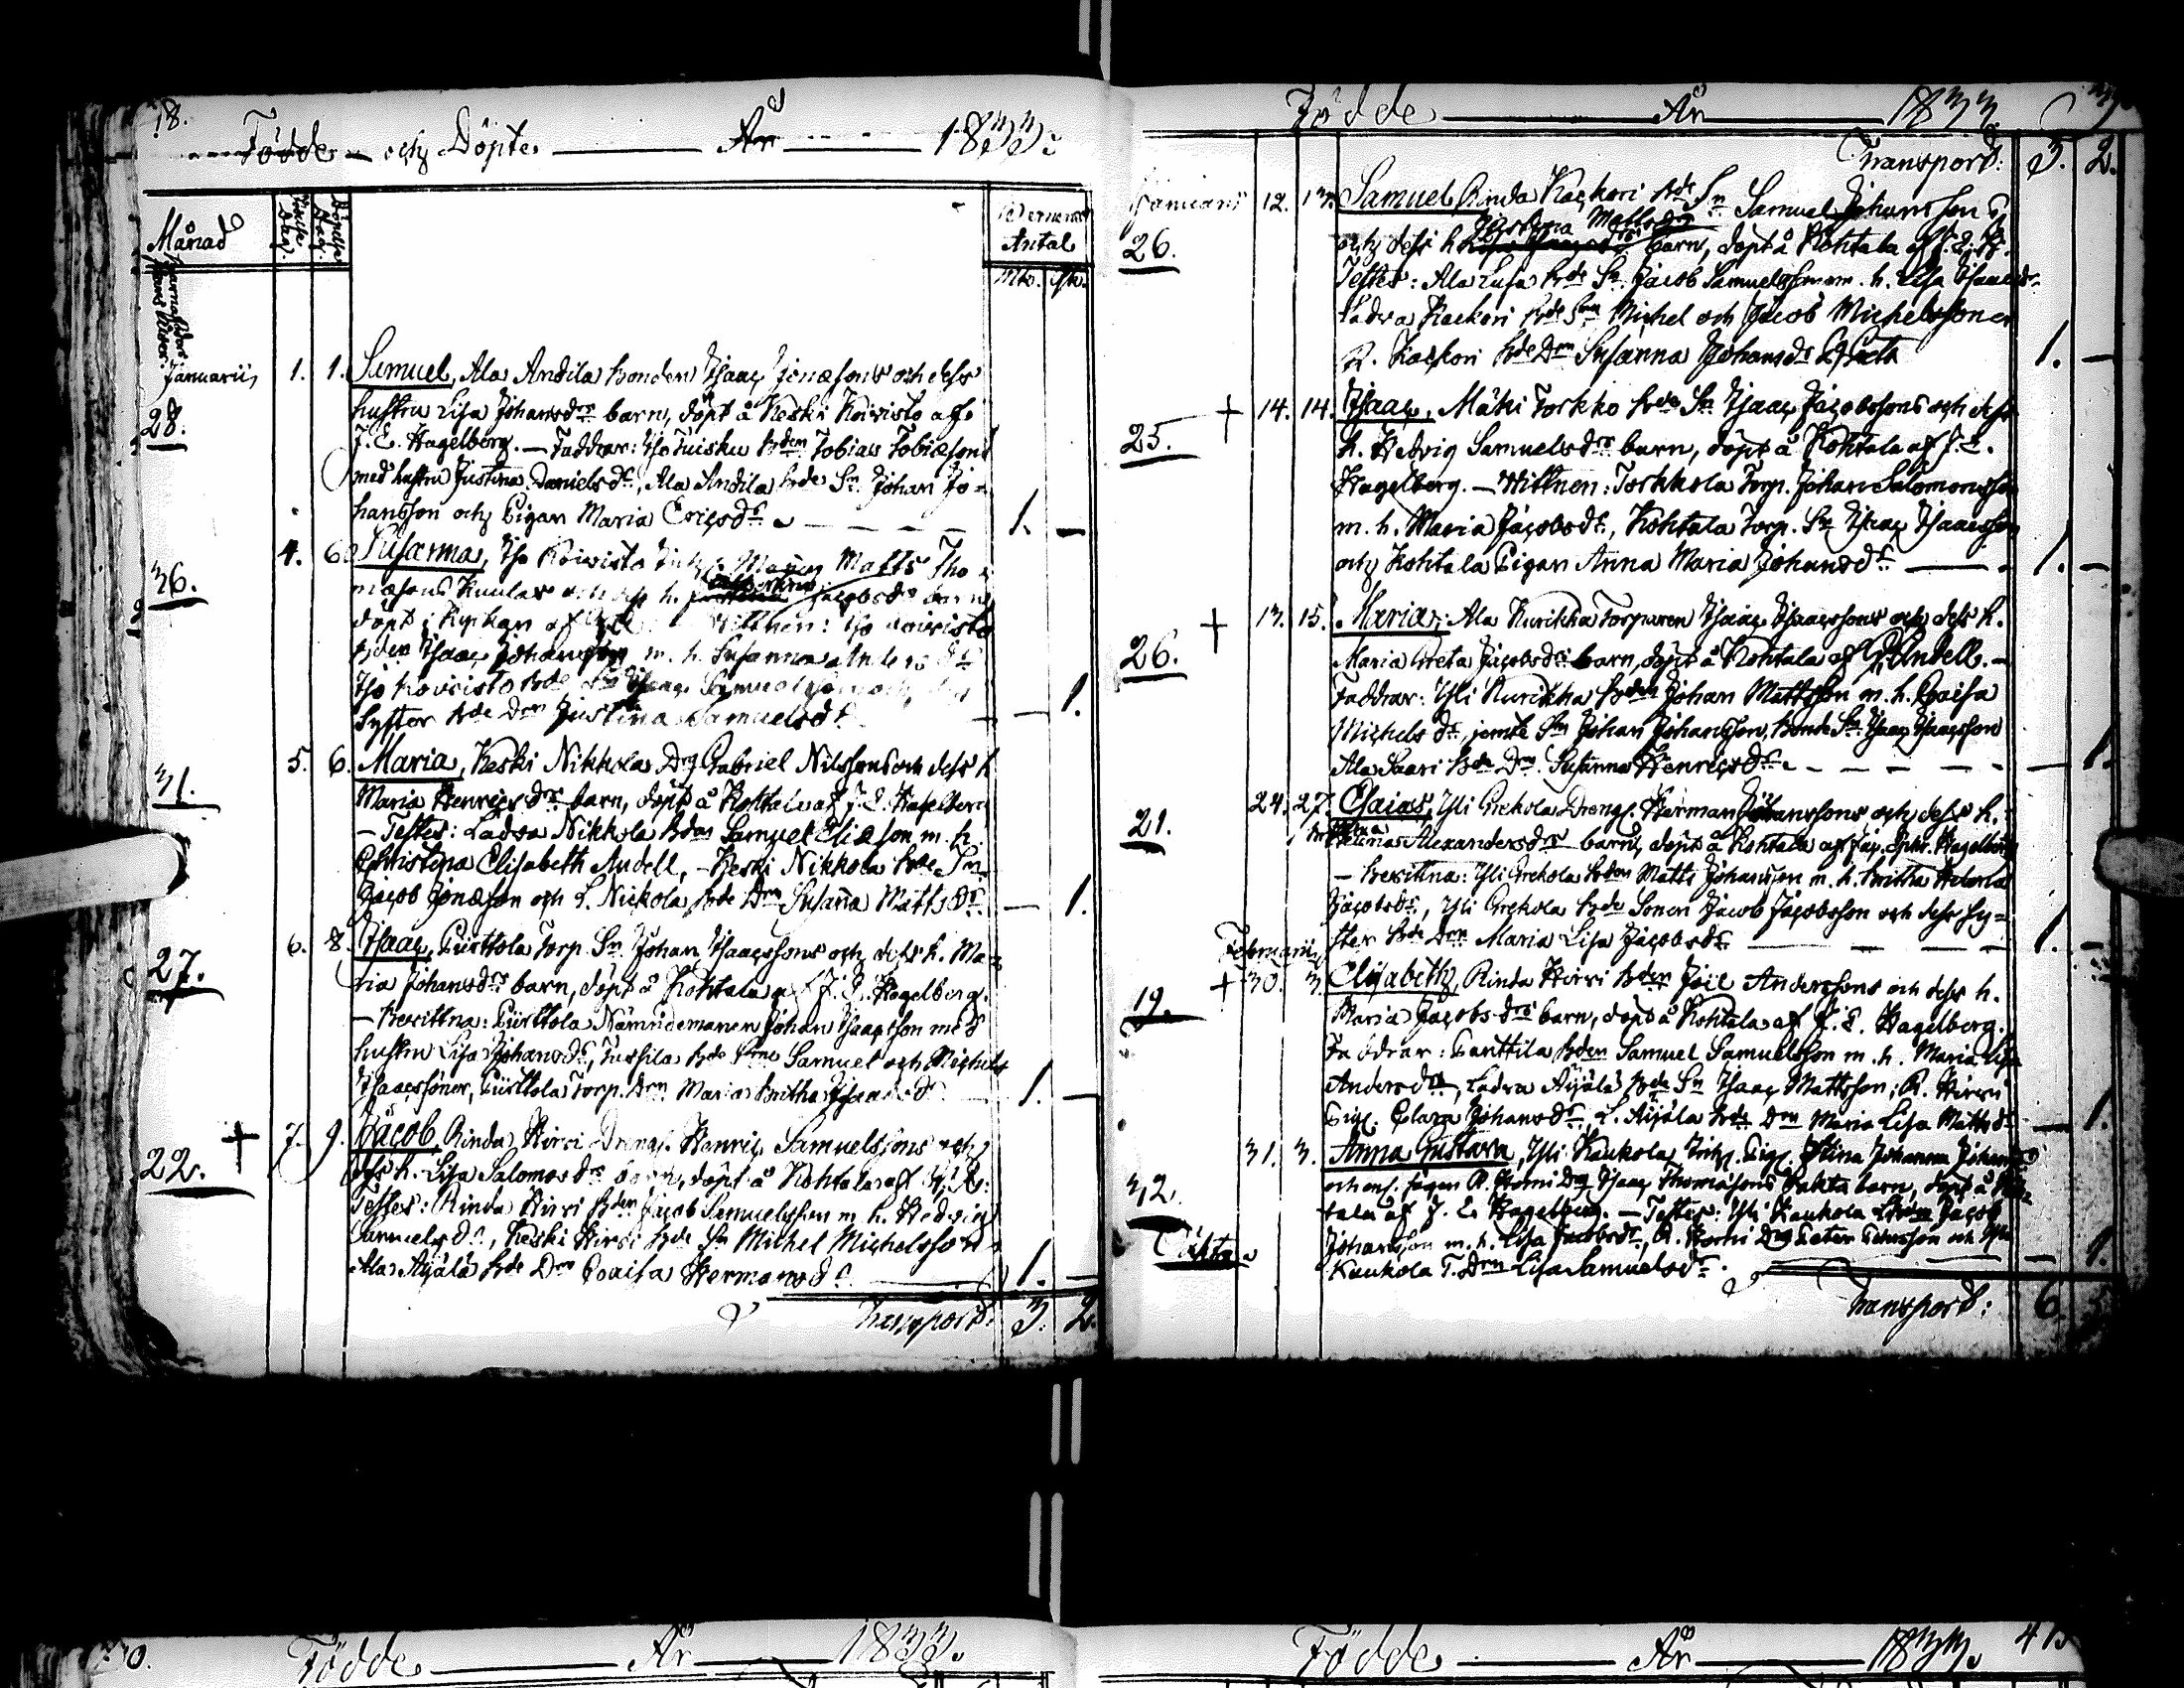 18.
Födde och Döpte År 1833.
Månad
Födelse Dag.
Döpelse Dag.
Barnafödar skans Ålder
Barnens Antal
Mk. Qk.
Januarii, 1. 1. Samuel, Ala Andila Bonden Isaac Jonæsons och dess
28. hustru Lisa Johansdrs barn, döpt å Keski Koivisto af
J. E. Hagelberg. — Faddrar: Iso Tuisku Bdem Tobias Tobiæson
med hustru Justina Danielsdr, Ala Andila bde Sn Johan Jo-
hansson och Pigan Maria Ericsdr 1. —
4. 6. Susanna, Iso Koivisto Matts Tho-
36. mæsons Kuulas och dess h. Jacobsdrs barn
döpt i Kyrkan af Wittnen: Iso Koivisto
bden Isaac Johansson m. h. Susanna Andersdr
Iso Koivisto bde Sn Isaac Samuelsson och
Syster bde Drn Justina Samuelsdr — 1.
5. 6. Maria, Keski Nikkola Drg Gabriel Nilssons och dess h
31. Maria Henricsdrs barn, döpt å Kohtala af J. E. Hagelberg
— Testes: Ladva Nikkola bden Samuel Eliæson m. h.
Christina Elisabeth Audell, — Keski Nikkola bde Sn
Jacob Jonæson och L. Nickola bde Drn Susanna Mattsdr — 1.
6. 8. Isaac, Pürttola Torp. Sn Johan Isaacssons och dess h. Ma-
27. ria Johansdrs barn, döpt å Kohtala af J. E. Hagelberg.
— Bevittna: Pürttola Nämndemanen Johan Isaacsson med
hustru Lisa Johansdr, Jussila bde Sne Samuel och Michels
Isaacssöner, Pürttola Torp. Drn Maria Britha Isaacsdr 1. —
+ 7. 9. Jacob, Rinda Hirvi Drengs. Henric Samuelssons och
22. dess h. Lisa Salomosdrs barn, döpt å Kohtala af
Testes: Rinda Hirvi Bden Jacob Samuelsson m. h. Hedvig
Samuelsdr, Keski Hirvi bde Sn Michel Michelsson
Ala Äijälä bde Drn Caisa Hermansdr 1. —
Transport: 3. 2.
Födde År 1833.
Transport: 3. 2.
Januarii 12. 13. Samuel Rinda Kackori bde Sn Samuel Johanssons
Justina Mattsdrs
26. och dess h barn, döpt å Kohtala af J. E. H.
Testes: Ala Lusa bde Sn Jacob Samuelsson m. h. Lisa Isaacsdr
Ladva Kackori bde Sne Michel och Jacob Michelssöner
R. Kackori bde Drn Susanna Johansdr 1. —
+ 14. 14. Isaac, Mäki Torkko bde Sn Isaac Jacobssons och dess
25. h. Hedvig Samuelsdrs barn, döpt å Kohtala af J. E.
Hagelberg. — Wittnen: Torkkola Torp. Johan Salomonsson
m. h. Maria Jacobsdr, Kohtala Torp. Sn Isaac Isaacsson
och Kohtala Pigan Anna Maria Johansdr 1. —
+ 13. 15. Maria, Ala Kurikka Torparen Isaac Isaacssons och dess h.
26. Maria Greta Jacobsdrs barn, döpt å Kohtala af Andell. —
Faddrar: Yli Kurikka bden Johan Mattsson m. h. Caisa
Michelsdr, jemte Sn Johan Johansson, bonde Sn Isaac Isaacsson
Ala Saari bde Drn Susanna Henricsdr — 1.
24. 27. Esaias, Yli Grekola Drengs. Herman Johanssons och dess h.
21. Alexandersdrs barn, döpt å Kohtala af Jac. Ephr. Hagelberg
— Bevittna: Yli Grekola bden Matts Johansson m. h. Britha Helena
Jacobsdr, Yli Grekola bde Sonen Jacob Jacobsson och dess sy-
ster bde Drn Maria Lisa Jacobsdr 1. —
Februarii,
+ 30. 3. Elisabeth, Rinda Hirvi bden Joel Anderssons och dess h.
19. Maria Jacobsdrs barn, döpt å Kohtala af J. E. Hagelberg.
Faddrar: Panttila bden Samuel Samuelsson m. h. Maria Lisa
Andersdr, Ladva Äijälä bde Sn Isaac Mattsson, R. Hirvi
Pig. Clara Johansdr, L. Äijälä bde Drn Maria Lisa Mattsdr — 1.
31. 3. Anna Gustava, Yli Kaukola Inh. Pig. Stina Johanna Johansdrs
32. Isaac Thomæsons barn, döpt å Koh-
tala af J. E. Hagelberg. — Testes: Yli Kaukola bden Jacob
Johansson m. h. Lisa Jacobsdr, R. Horni Drg Peter Petersson och Yli
Oäkta Kaukola T. Drn Lisa Samuelsdr — 1.
Transport: 6 5
Födde År 1833.
Födde År 1833. 41.